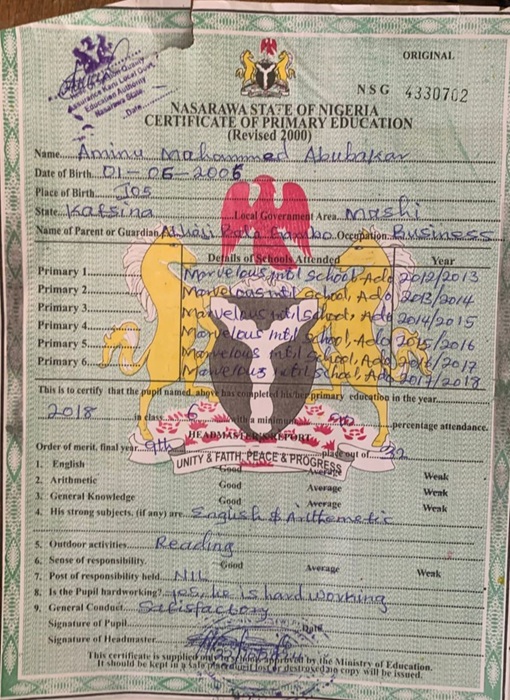 ORIGINAL
NSG 4330702
NASARAWA STATE OF NIGERIA
CERTIFICATE OF PRIMARY EDUCATION
(Revised 2000)
Name Aminu Mahammed Abubakar
Date of Birth 01-06-2006
Place of Birth Jos
State Katsina Local Government Area Mashi
Name of Parent or Guardian Occupation Business
Details of Schools Attended Year
Primary 1 Marvelous int'l school, Ado 2012/2013
Primary 2 Marvelous int'l school, Ado 2013/2014
Primary 3 Marvellous int'l school, Ado 2014/2015
Primary 4 Marvelous int'l school, Ado 2015/2016
Primary 5 Marvelous int'l school, Ado 2016/2017
Primary 6 Marvelous int'l school, Ado 2017/2018
This is to certify that the pupil named above has completed his/her primary education in the year
2018 in class 6 with a minimum percentage attendance.
HEADMASTER'S REPORT
Order of merit, final year 9th place out of 32
UNITY & FAITH, PEACE & PROGRESS
1. English Good Average Weak
2. Arithmetic Good Average Weak
3. General Knowledge Good Average Weak
4. His strong subjects, (if any) are English & Arithemetic
5. Outdoor activities Reading
6. Sense of responsibility Good Average Weak
7. Post of responsibility held NIL
8. Is the Pupil hardworking? yes, he is hard working
9. General Conduct Satisfactory
Signature of Pupil Date
Signature of Headmaster
This certificate is supplied approved by the Ministry of Education.
It should be kept in a safe place if lost or destroyed no copy will be issued.